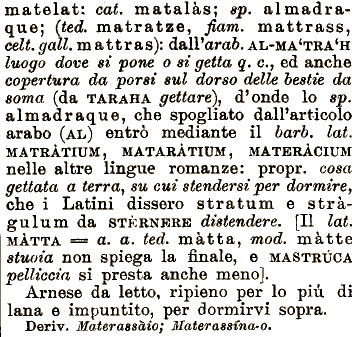 matelat: cat. matalàs; sp. almadra-
que; (ted. matratze, fiam. mattrass,
celt. gall. mattras): dall'arab. AL-MA‘TRA‘H
luogo dove si pone o si getta q. c., ed anche
copertura da porsi sul dorso delle bestie da
soma (da TARAHA gettare), d'onde lo sp.
almadraque, che spogliato dall'articolo
arabo (AL) entrò mediante il barb. lat.
MATRÀTIUM, MATARÀTIUM, MATERÀCIUM
nelle altre lingue romanze: propr. cosa
gettata a terra, su cui stendersi per dormire,
che i Latini dissero stratum e strà-
gulum da STÈRNERE distendere. [Il lat.
MÀTTA = a. a. ted. màtta, mod. màtte
stuoia non spiega la finale, e MASTRÚCA
pelliccia si presta anche meno].
Arnese da letto, ripieno per lo più di
lana e impuntito, per dormirvi sopra.
Deriv. Materassàio; Materassína-o.